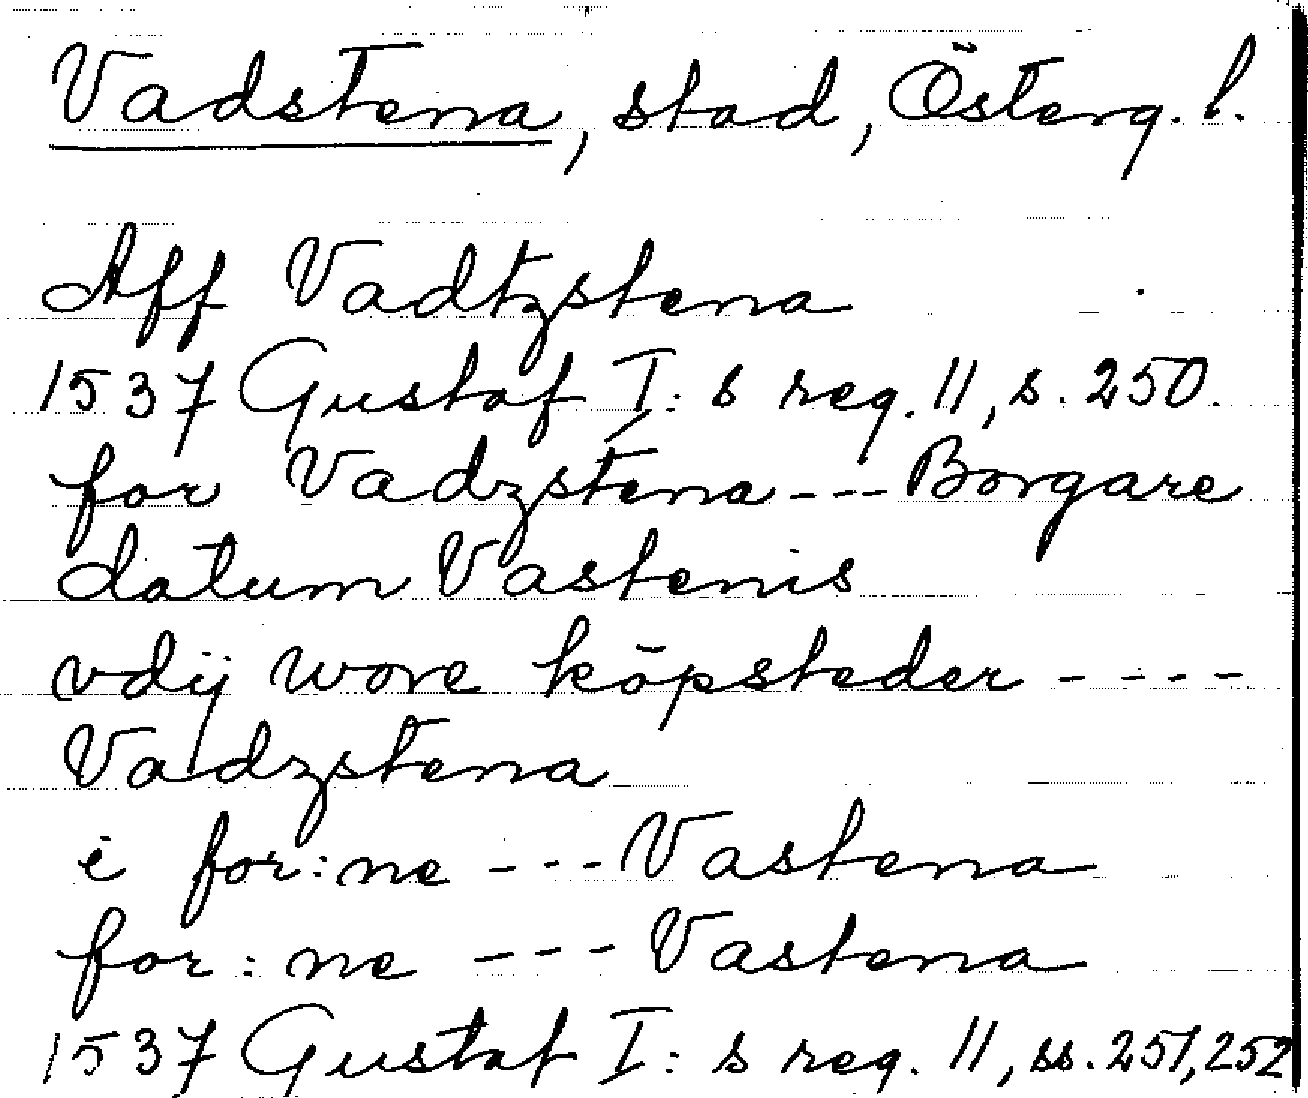 Vadstena, stad, Österg. l.
Aff Vadtzstena
1537 Gustaf I: s reg. 11, s. 250.
for Vadzstena --- Borgare
datum Vastenis
vdij wore köpsteder ----
Vadzstena
i for:ne --- Vastena
for:ne --- Vastena
1537 Gustaf I: s reg. 11, ss. 251, 252